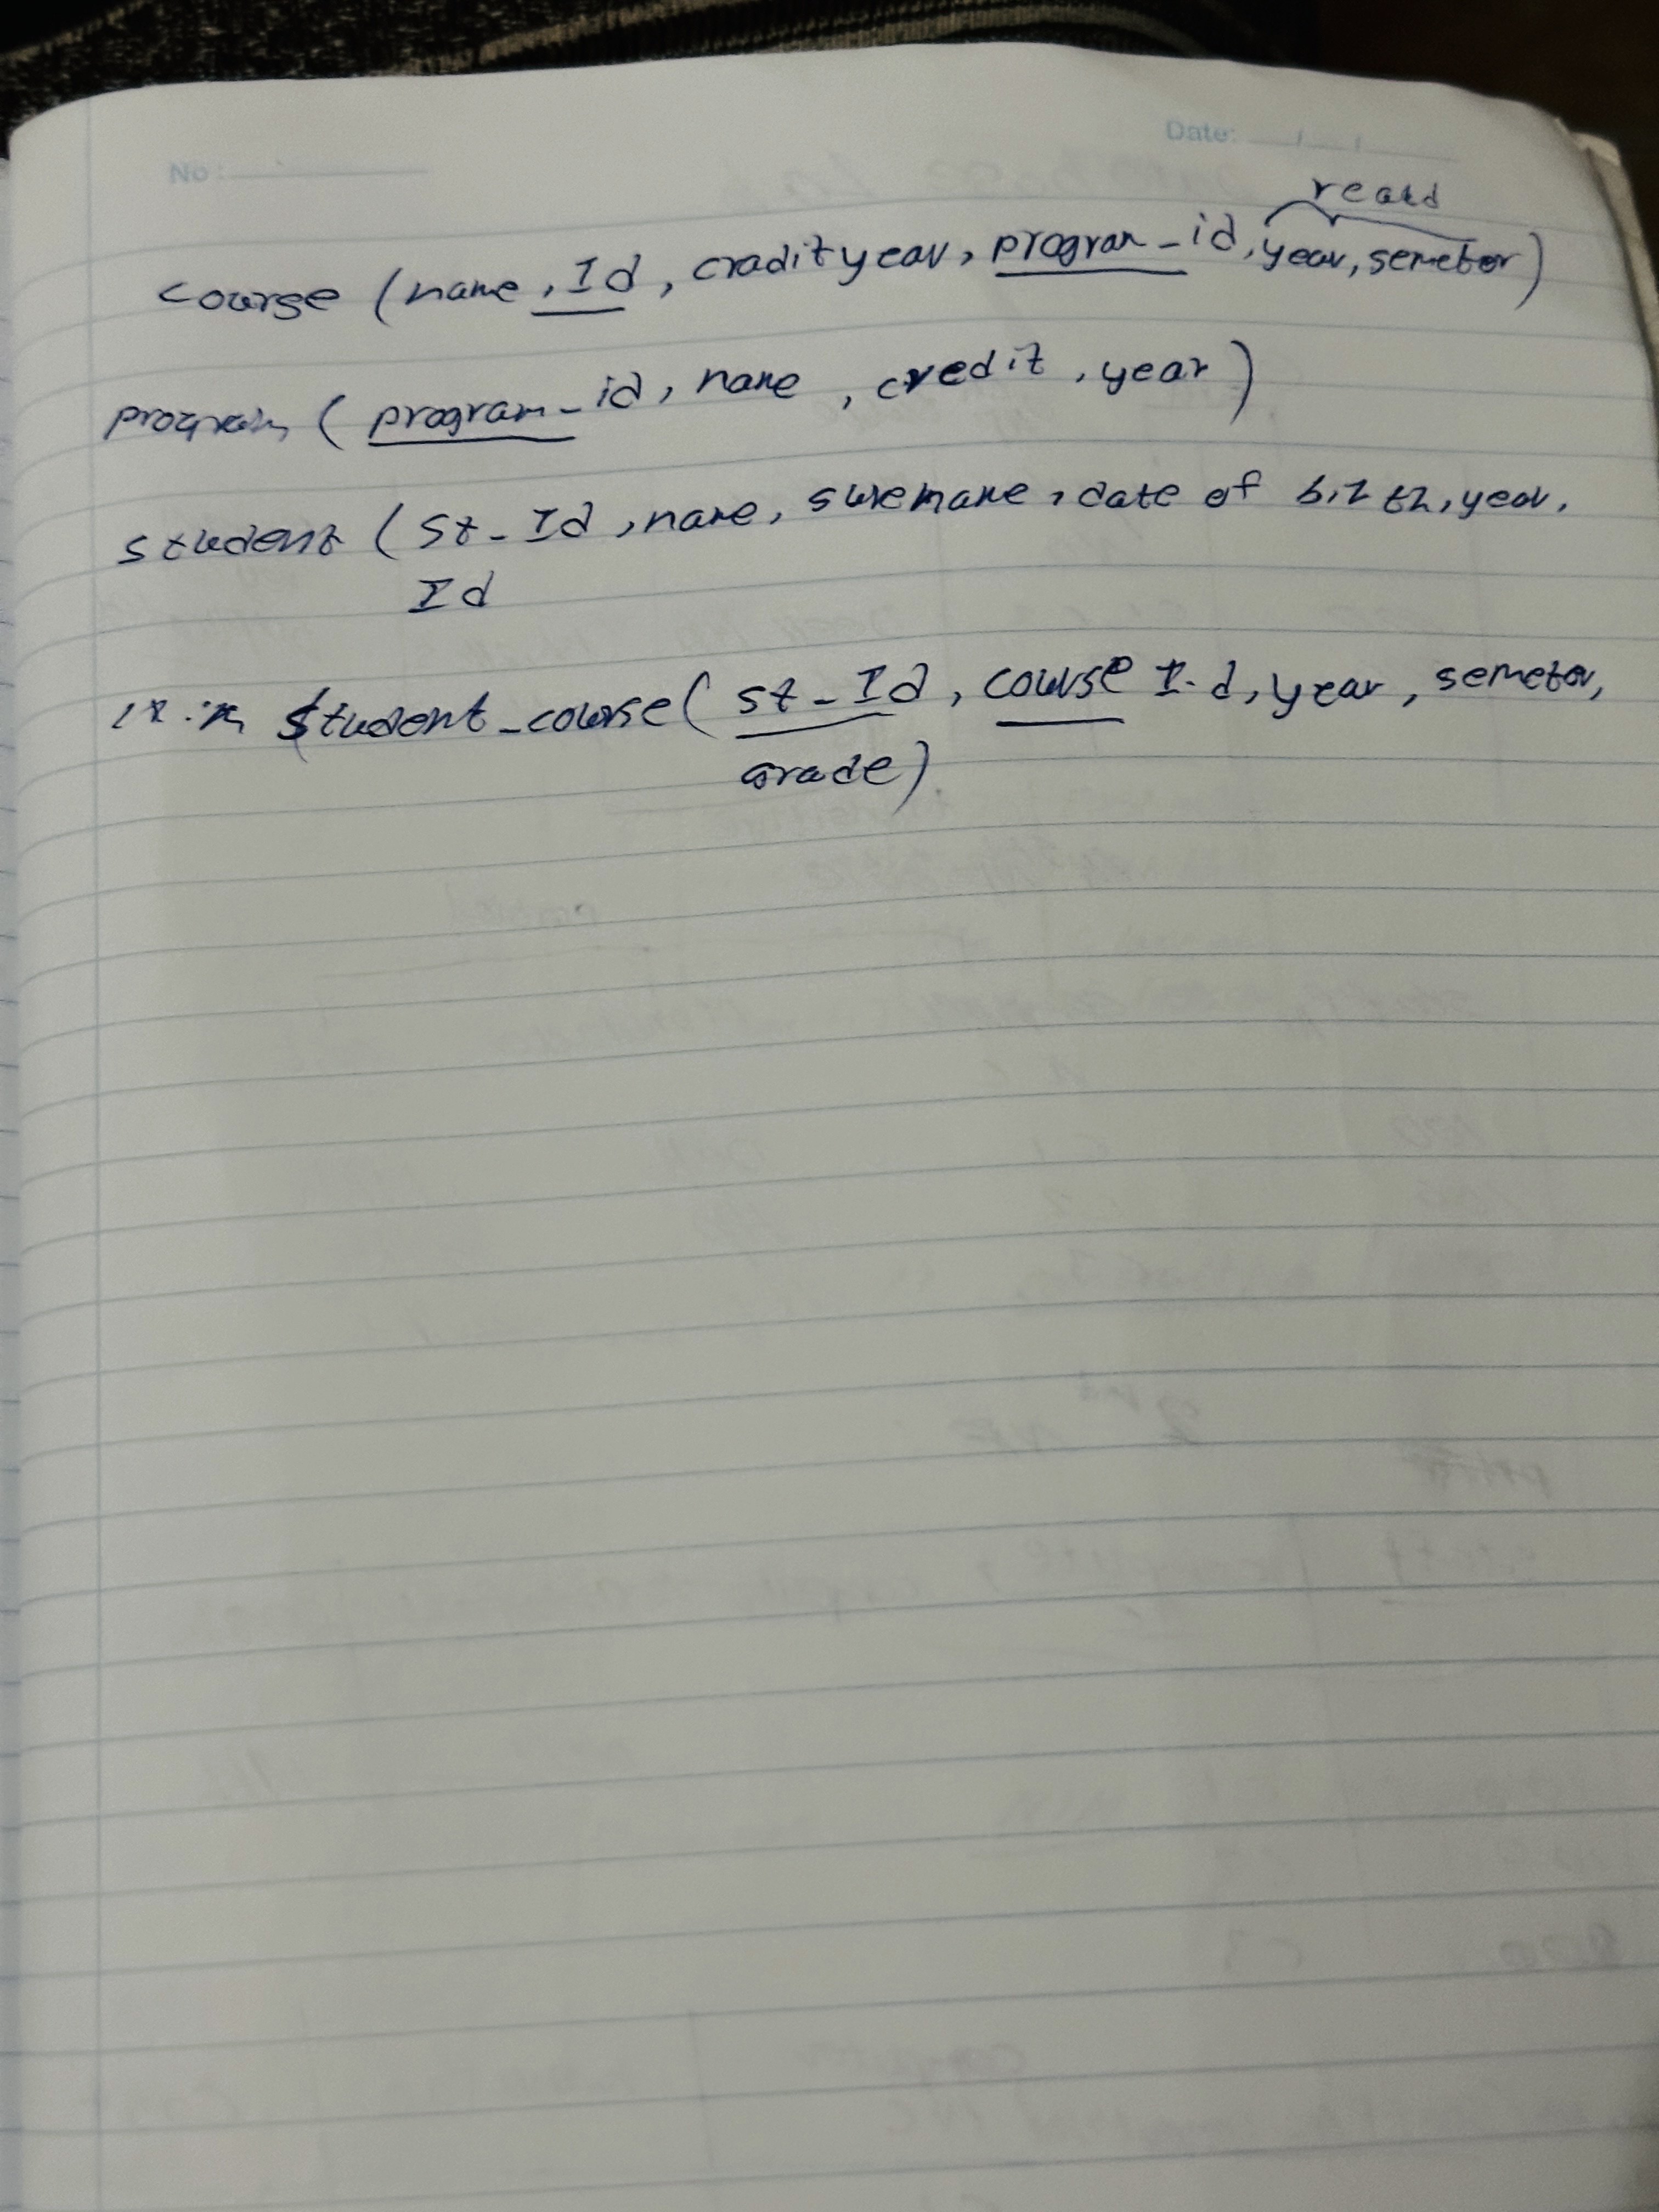 No:
Date:
course (name, Id, cradityear, program_id, year, semetor)
program ( program_id, name, credit, year)
student ( St_Id, name, suremame, date of birth, year,
Id
Student_course( st_Id, course I.d, year, semetor,
Grade)